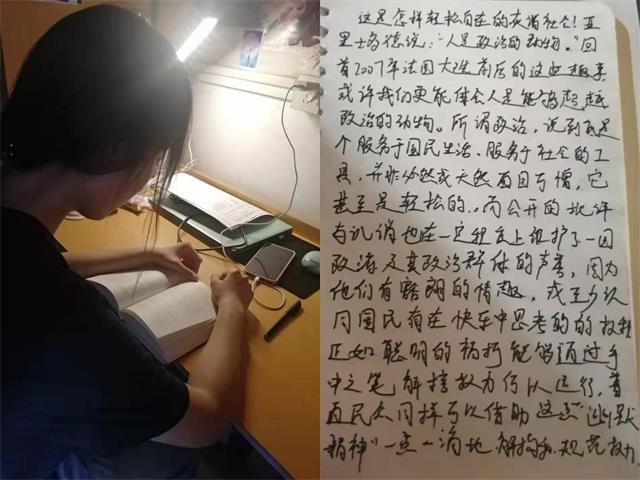 这是怎样轻松自在的友谊社会！亚
里士多德说：“人是政治的动物。”回
首2007年法国大选前后的这些趣事
或许我们更能体会人是能够超越
政治的动物。所谓政治，说到底是
个服务于国民生活、服务于社会的工
具，并非必然或天然面目可憎，它
甚至是轻松的，而公开的批评
与讥俏也在一定程度上维护了一国
政治及其政治群体的声誉，因为
他们有豁朗的情趣，或至少认
同国民有在快乐中思考的的权利
正如聪明的 能够通过手
中之笔解 权力何以运行，普
通民众同样可以借助这些“幽默
精神”一点一滴地解构和规范权力